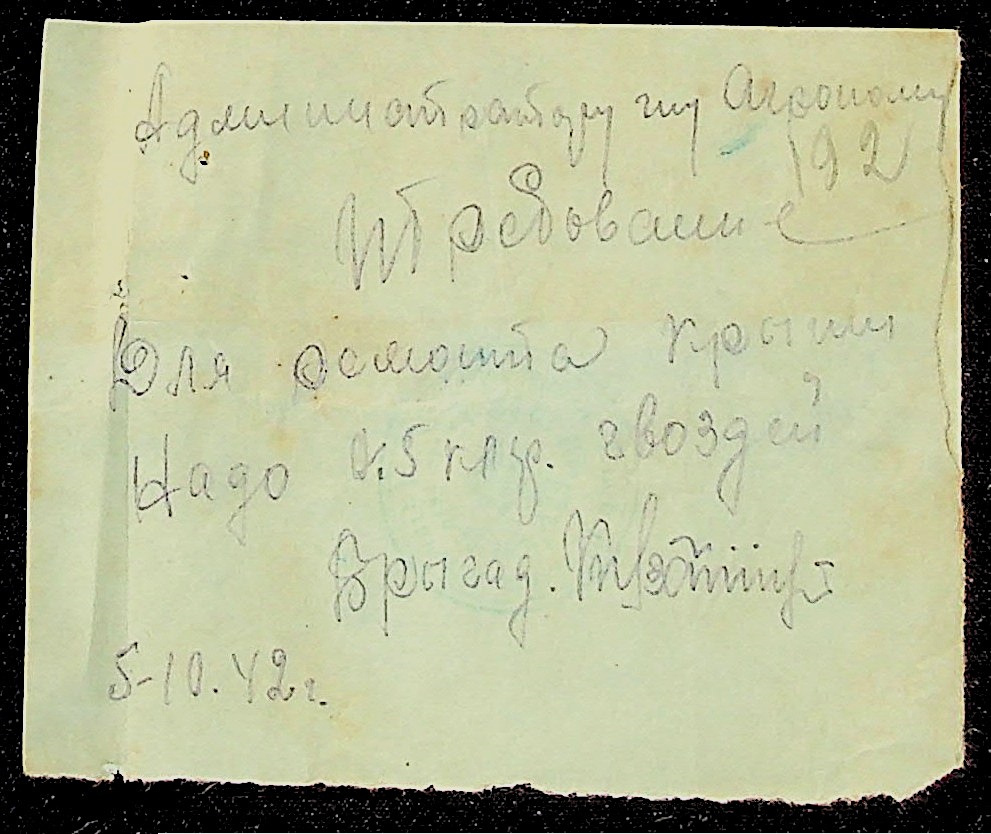 Администратору гну Агроному
192
Требование
Для ремонта крыши
Надо 0.5 клгр. гвоздей
Брыгад.
5-10.42г.